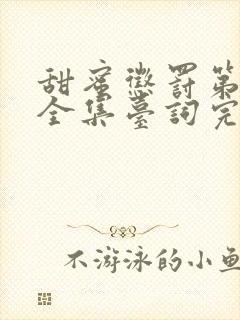 甜蜜懲罰第
全集臺詞完
不游泳的小魚